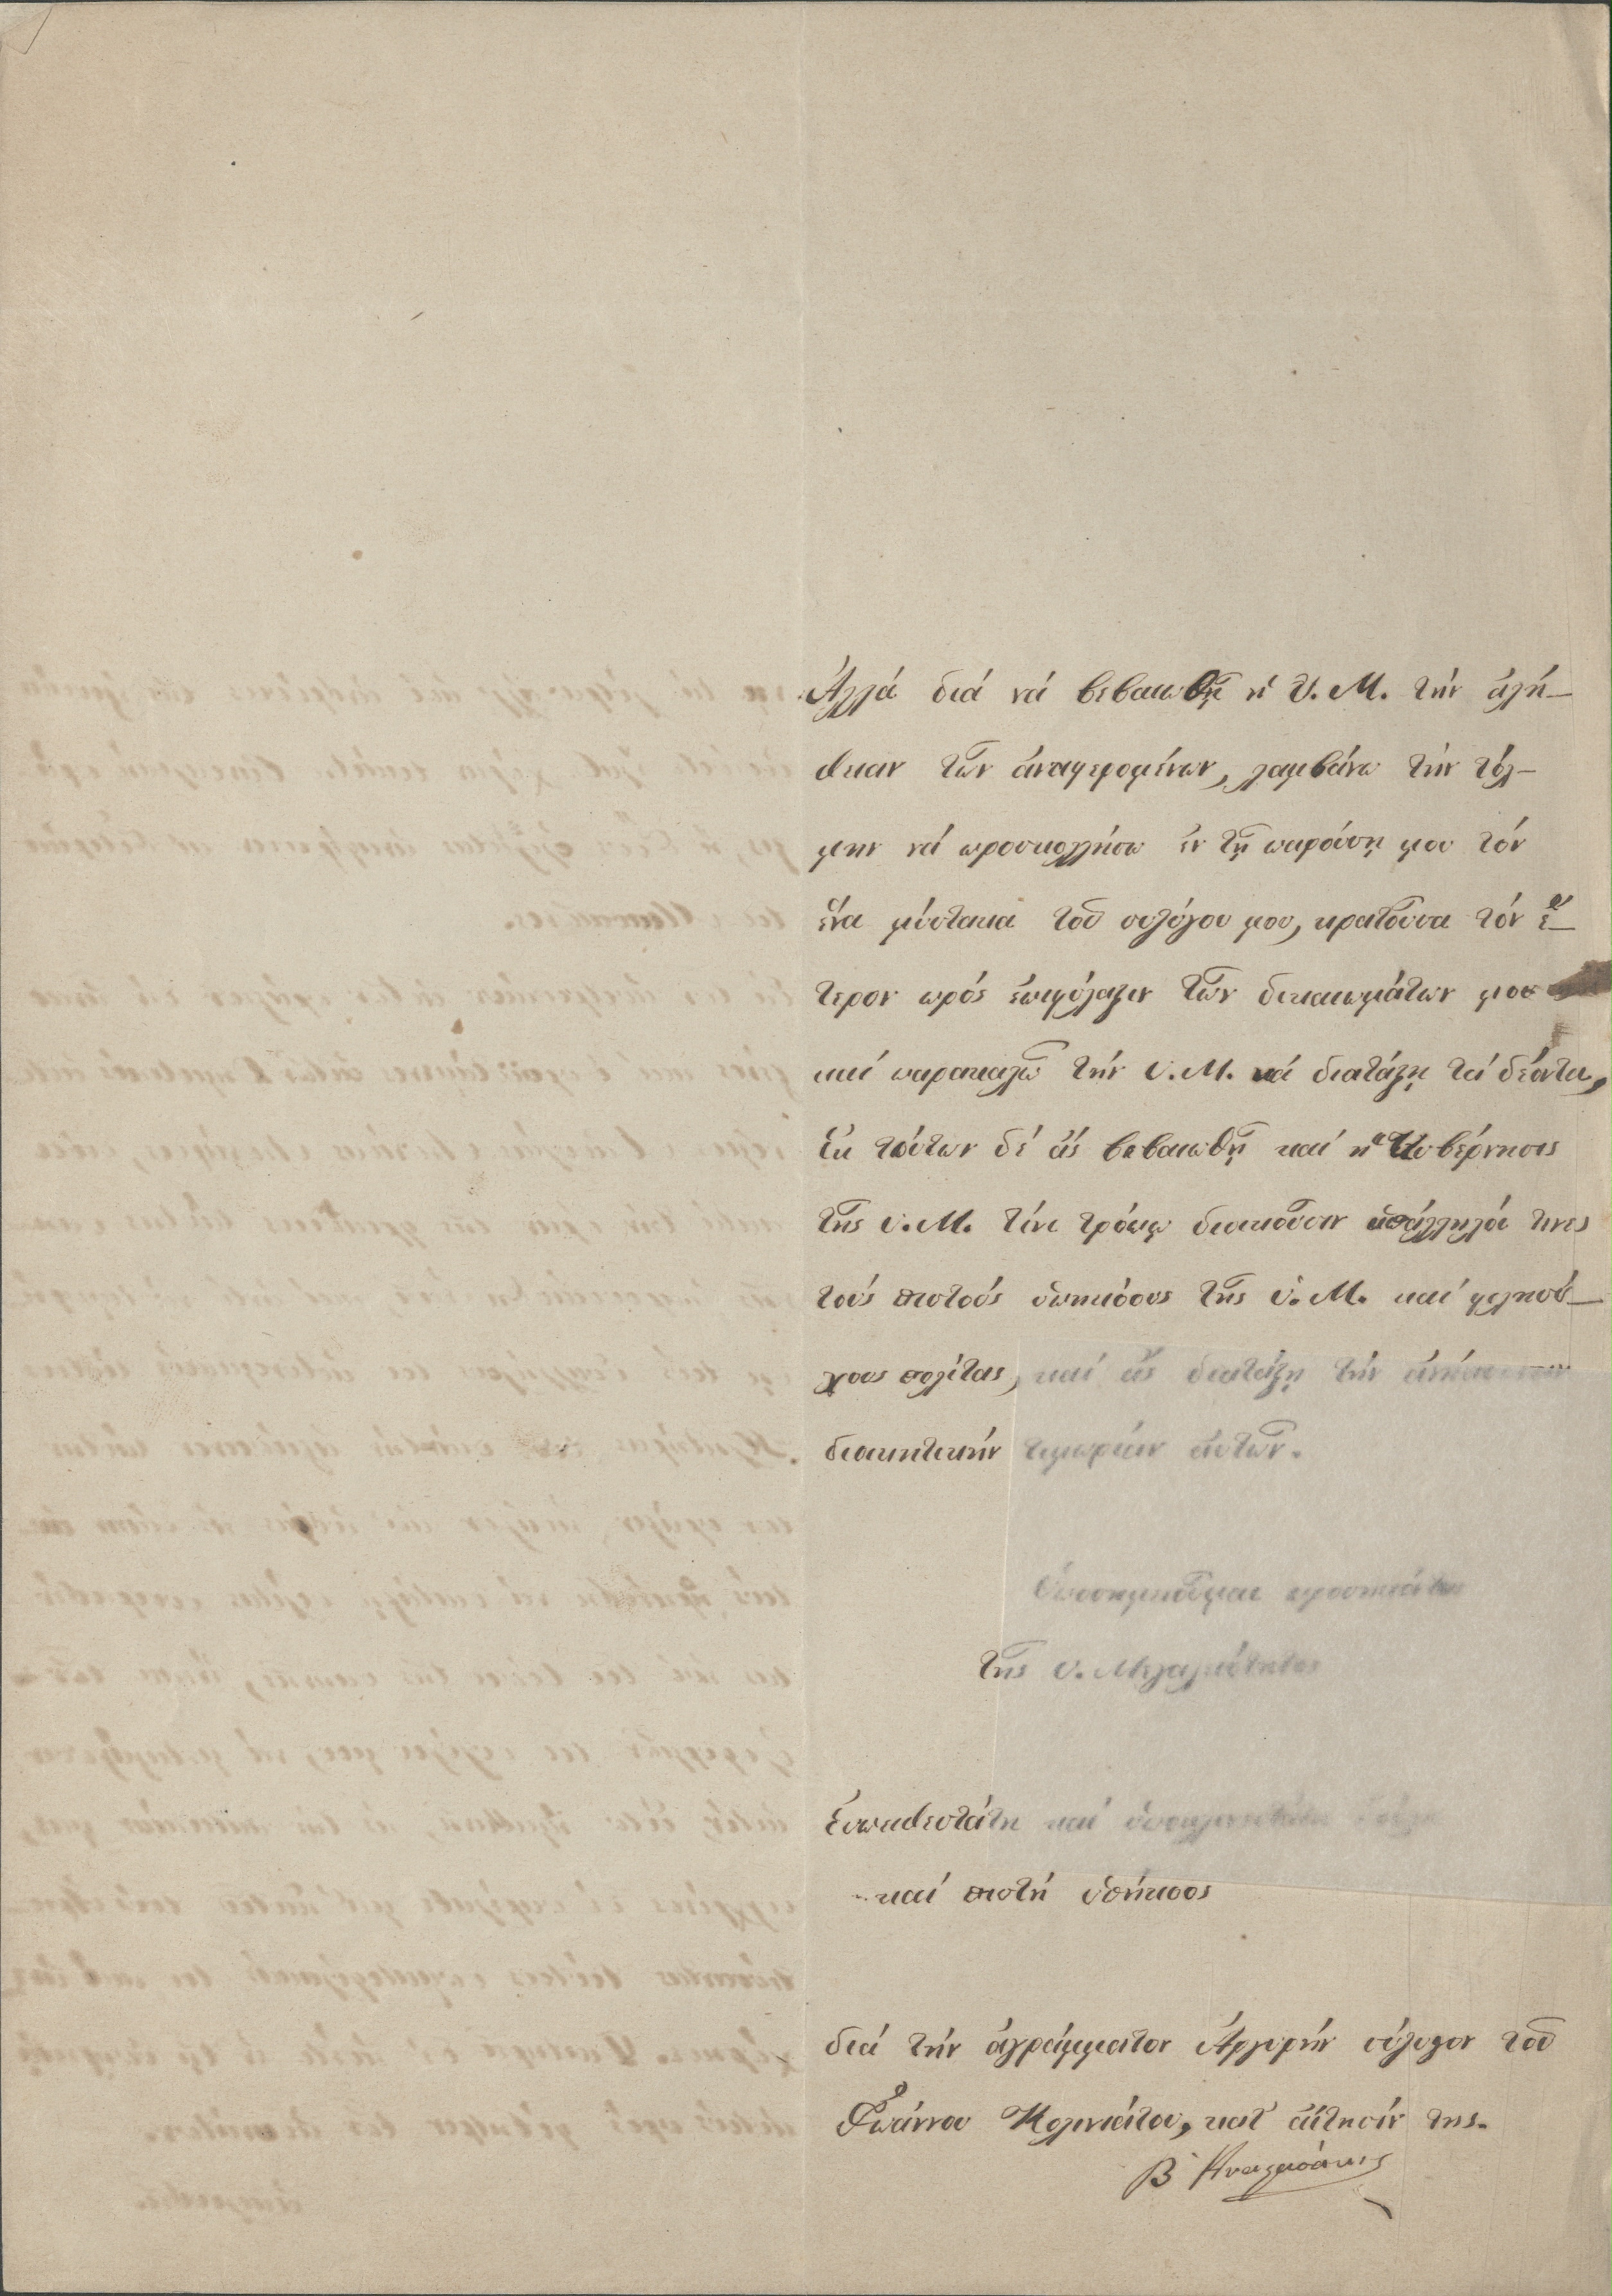 Ἀλλά διά νά βεβαιωθῇ ἡ Υ. Μ. τήν ἀλή-
θειαν τῶν ἀναφερομένων, λαμβάνω τήν τόλ-
μην νά προσκολλήσω ἐν τῇ παρούσῃ μου τόν
ἕνα μύστακα τοῦ συζύγου μου, κρατοῦσα τόν ἕ-
τερον πρός ἐπιφύλαξιν τῶν δικαιωμάτων μου
καί παρακαλῶ τήν Υ. Μ. νά διατάξῃ τά δέοντα,
Ἐκ τούτων δέ ἄς βεβαιωθῇ καί ἡ Κυβέρνησις
τῆς Υ. Μ. τίνι τρόπῳ διοικοῦσιν ὑπάλληλοί τινες
τούς πιστούς ὑπηκόους τῆς Υ. Μ. καί φιλησύ-
χους πολίτας, καί ἄς διατάξῃ τήν ἀνήκουσαν
διοικητικήν τιμωρίαν αὐτῶν.
Ὑποσημειοῦμαι προσκυνοῦσα
τῆς Υ. Μεγαλειότητος
Εὐπειθεστάτη καί ὑποκλινεστάτη δούλη
καί πιστή ὑπήκοος
διά τήν ἀγράμματον Ἀργυρήν σύζυγον τοῦ
Ἰωάννου Κολινιάτου, κατ᾽ αἴτησίν της.